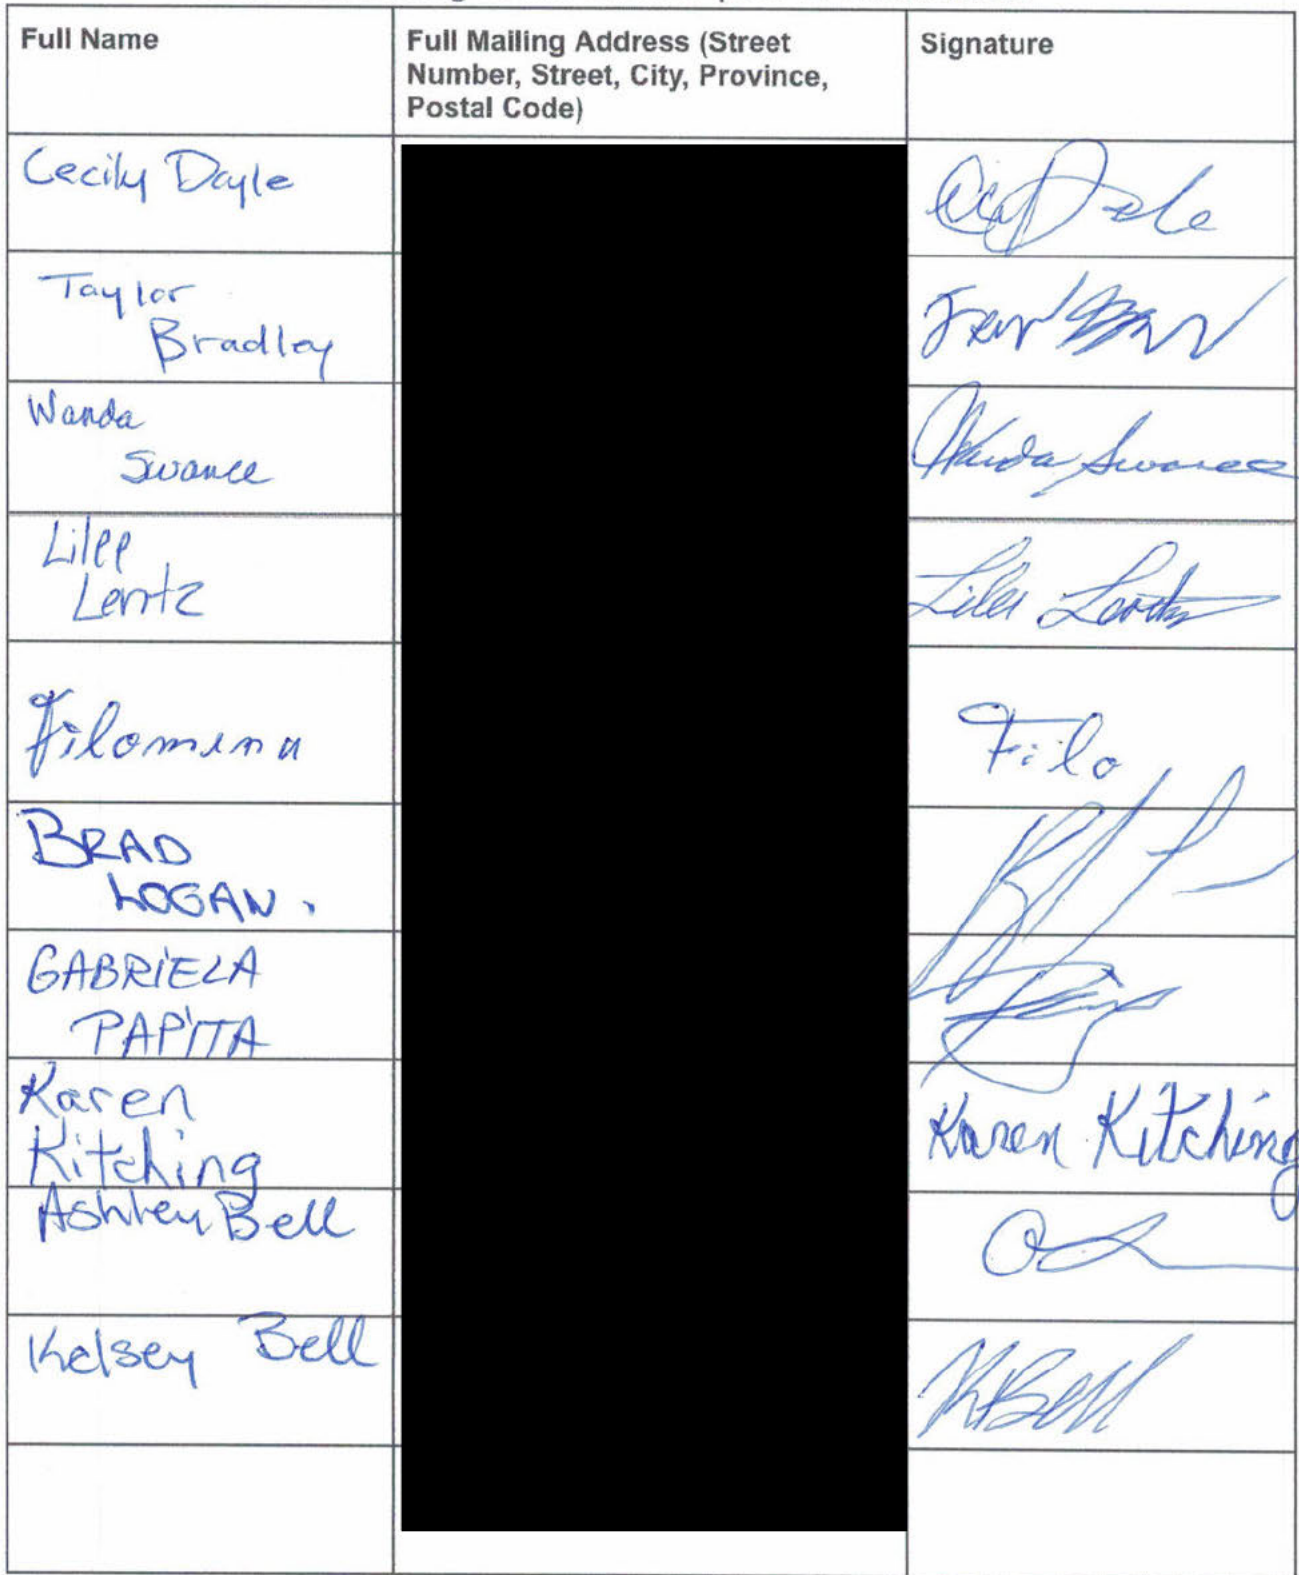 Full Name
Full Mailing Address (Street
Number, Street, City, Province,
Postal Code)
Signature
Cecily Dayle
Taylor
Bradley
Wanda
Swance
Wanda Swance
Lilee
Lentz
Lilee Lentz
Filomena
Filo
BRAD
LOGAN.
GABRIELA
PAPITA
Karen
Kitching
Karen Kitching
Ashley Bell
Kelsey Bell
KBell